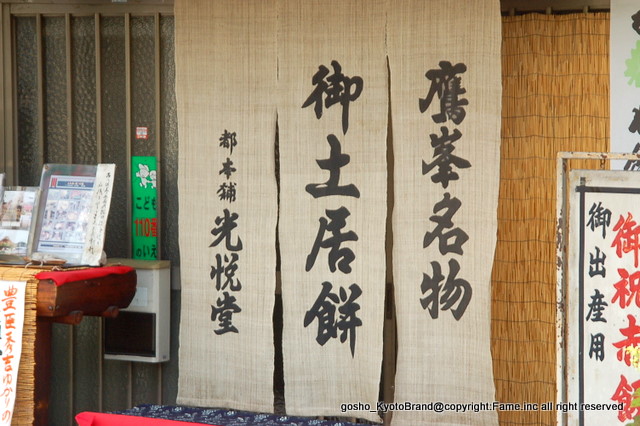 鷹峯名物
御土居餅
都本舗 光悦堂
こども
110番
のいえ
豊臣秀吉ゆかりの
御祝赤飯
御出産用
gosho_KyotoBrand@copyright:Fame.inc all right reserved